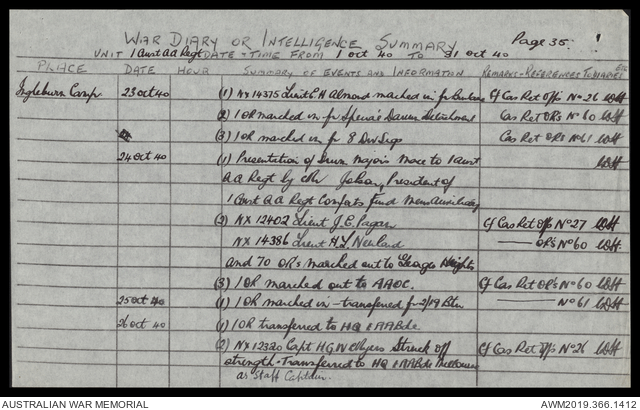 WAR DIARY OR INTELLIGENCE SUMMARY Page 35.
UNIT 1 Aust AA Regt DATE - TIME FROM 1 Oct 40 TO 31 Oct 40
PLACE DATE HOUR SUMMARY OF EVENTS AND INFORMATION REMARKS - REFERENCES TO DIARIES ETC
Ingleburn Camp 23 Oct 40 (1) NX 14375 Lieut E H Almond marched in fr Cf Cas Ret Offs No 26
(2) 1 OR marched in fr Darwin Detachment Cas Ret ORs No 60
(3) 1 OR marched in fr 8 Div Sigs Cas Ret ORs No 61
24 Oct 40 (1) Presentation of Drum Major's Mace to 1 Aust
AA Regt by Mr President of
1 Aust AA Regt Comforts Fund Auxiliary
(2) NX 12402 Lieut J.E. Pagan Cf Cas Ret Offs No 27
NX 14386 Lieut H.L. Newland ORs No 60
and 70 ORs marched out to Georges Heights
(3) 1 OR marched out to AAOC. Cf Cas Ret ORs No 60
25 Oct 40 (1) 1 OR marched in - transferred fr 2/19 Btn No 61
26 Oct 40 (1) 1 OR transferred to HQ 1 AABde
(2) NX 12320 Capt HGW Myers Struck off Cf Cas Ret Offs No 26
strength - Transferred to HQ 1 AABde Melbourne
as Staff Captain.
AUSTRALIAN WAR MEMORIAL AWM2019.366.1412